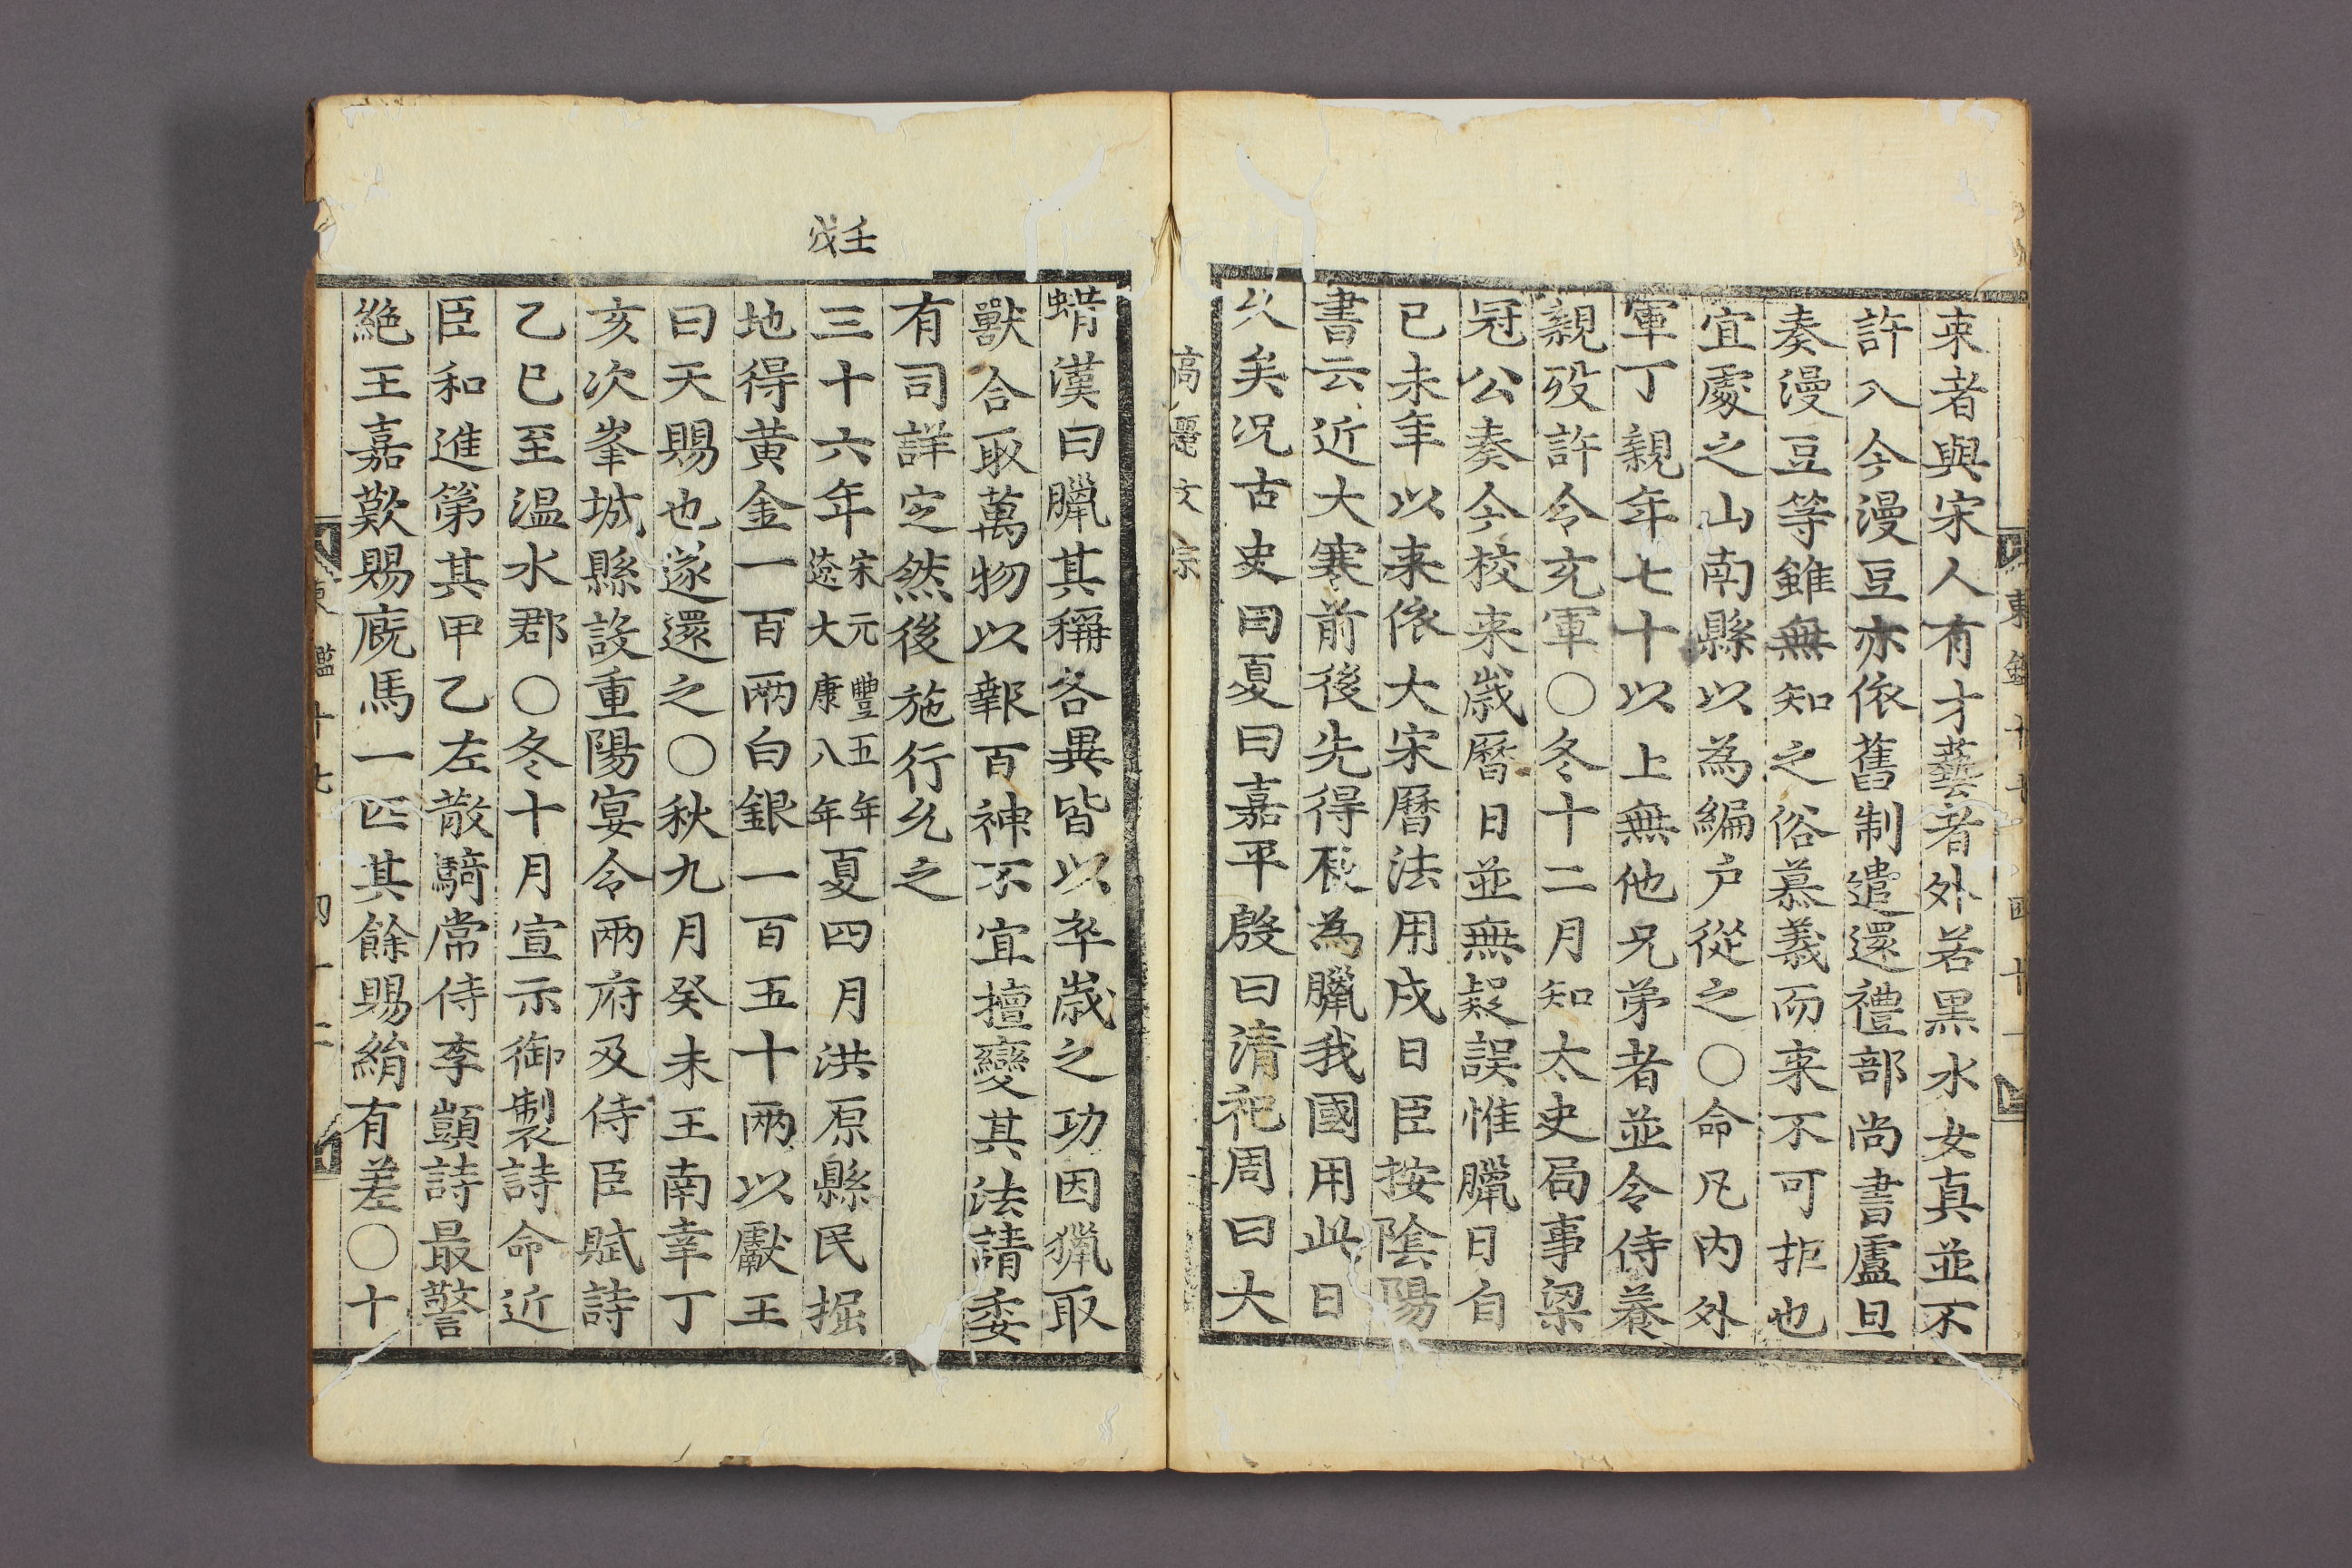 来者與宋人有才藝者外若黒水女真並不
許入今漫豆亦依舊制遣還禮部尚書盧旦
奏漫豆等雖無知之俗慕義而来不可拒也
宜處之山南縣以為編户從之〇命凡内外
軍丁親年七十以上無他兄弟者並令侍養
親歿許令充軍〇冬十二月知太史局事梁
冠公奏今校来歲曆日並無疑誤惟臘日自
已未年以来依大宋曆法用戌日臣按陰陽
書云近大寒前後先得辰為臘我國用此日
久矣况古史曰夏曰嘉平殷曰清祀周曰大
高麗文宗
壬戌
蜡漢曰臘其稱各異皆以卒歲之功因獵取
獸合取萬物以報百神不宜擅變其法請委
有司詳定然後施行允之
三十六年宋元豐五年遼大康八年夏四月洪原縣民掘
地得黄金一百兩白銀一百五十兩以獻王
曰天賜也遂還之〇秋九月癸未王南幸丁
亥次峯城縣設重陽宴令兩府及侍臣賦詩
乙巳至温水郡〇冬十月宣示御製詩命近
臣和進第其甲乙左散騎常侍李顗詩最警
絶王嘉歎賜廐馬一匹其餘賜絹有差〇十